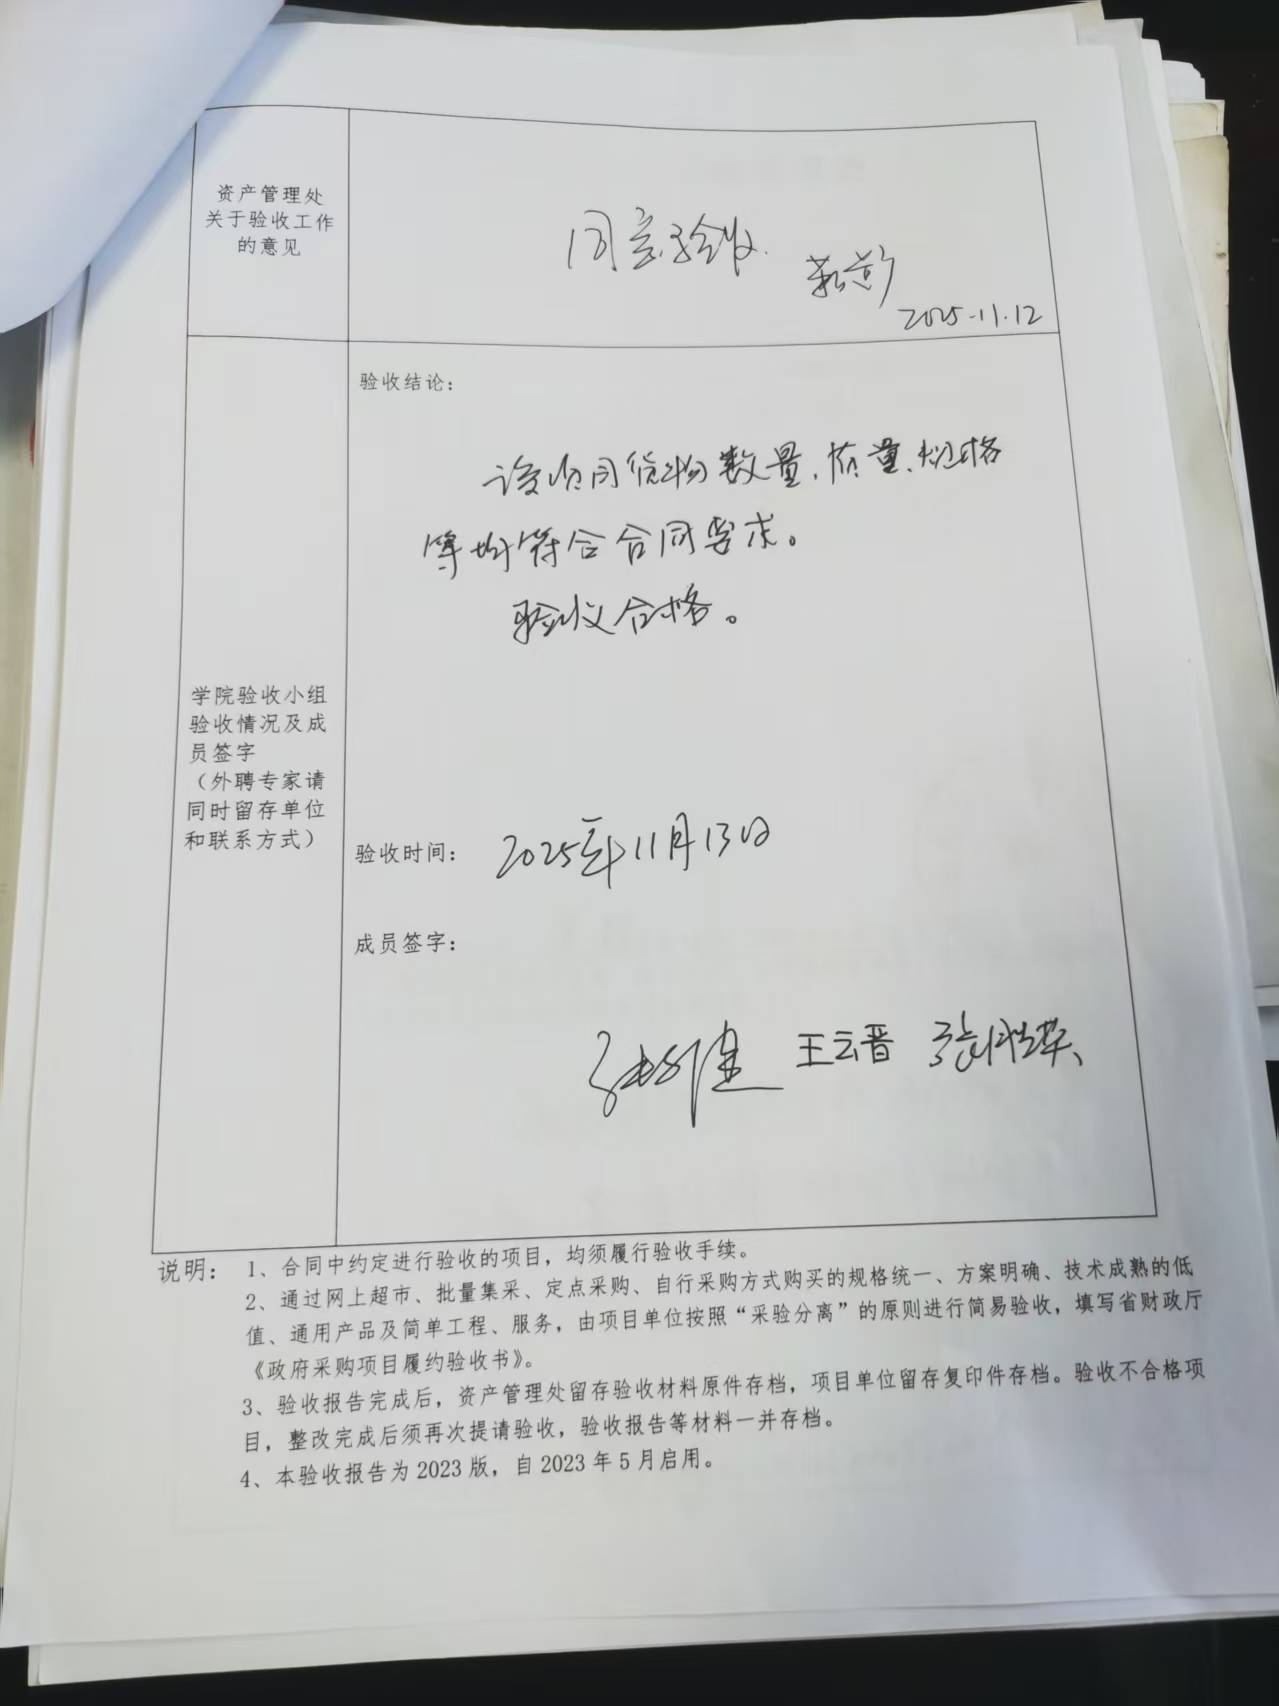 资产管理处
关于验收工作
的意见
同意验收.
2025.11.12
学院验收小组
验收情况及成
员签字
（外聘专家请
同时留存单位
和联系方式）
验收结论：
该项目货物数量、质量、规格
等均符合合同要求。
验收合格。
验收时间：2025年11月13日
成员签字：
王云晋 张胜荣
说明：1、合同中约定进行验收的项目，均须履行验收手续。
2、通过网上超市、批量集采、定点采购、自行采购方式购买的规格统一、方案明确、技术成熟的低
值、通用产品及简单工程、服务，由项目单位按照“采验分离”的原则进行简易验收，填写省财政厅
《政府采购项目履约验收书》。
3、验收报告完成后，资产管理处留存验收材料原件存档，项目单位留存复印件存档。验收不合格项
目，整改完成后须再次提请验收，验收报告等材料一并存档。
4、本验收报告为 2023 版，自 2023 年 5 月启用。